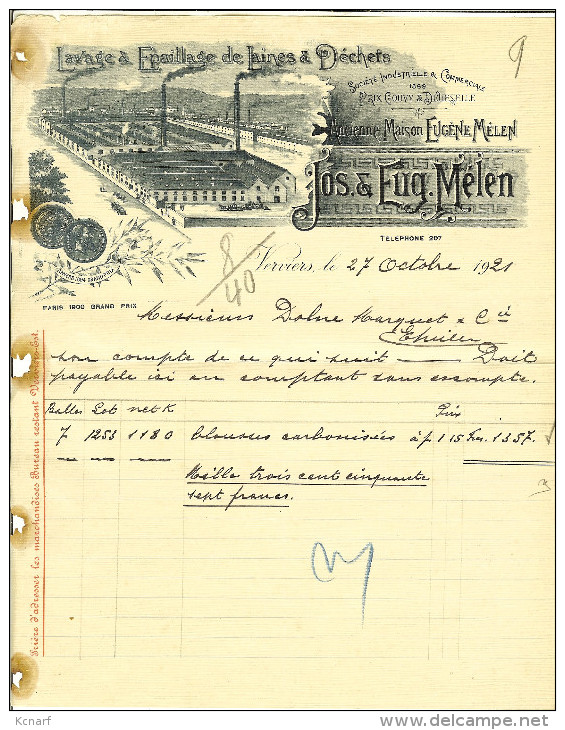 Lavage & Epaillage de Laines & Déchets
9
Société Industrielle & Commerciale
1896
Prix Gouvy & Deheselle
Ancienne Maison Eugène Mélen
Jos. & Eug. Mélen
TÉLÉPHONE 207
8/40
Verviers, le 27 Octobre 1921
PARIS 1900 GRAND PRIX
Messieurs Dolne Marquet & Cie
son compte de ce qui suit — Doit
payable ici au comptant sans escompte.
Balles Lot net K Prix
7 1253 1180 blouses carbonisées à f 1 15 Frs. 1357.
Mille trois cent cinquante
sept francs.
Prière d'adresser les marchandises Bureau restant Verviers-Est.
Kcnarf
www.delcampe.net